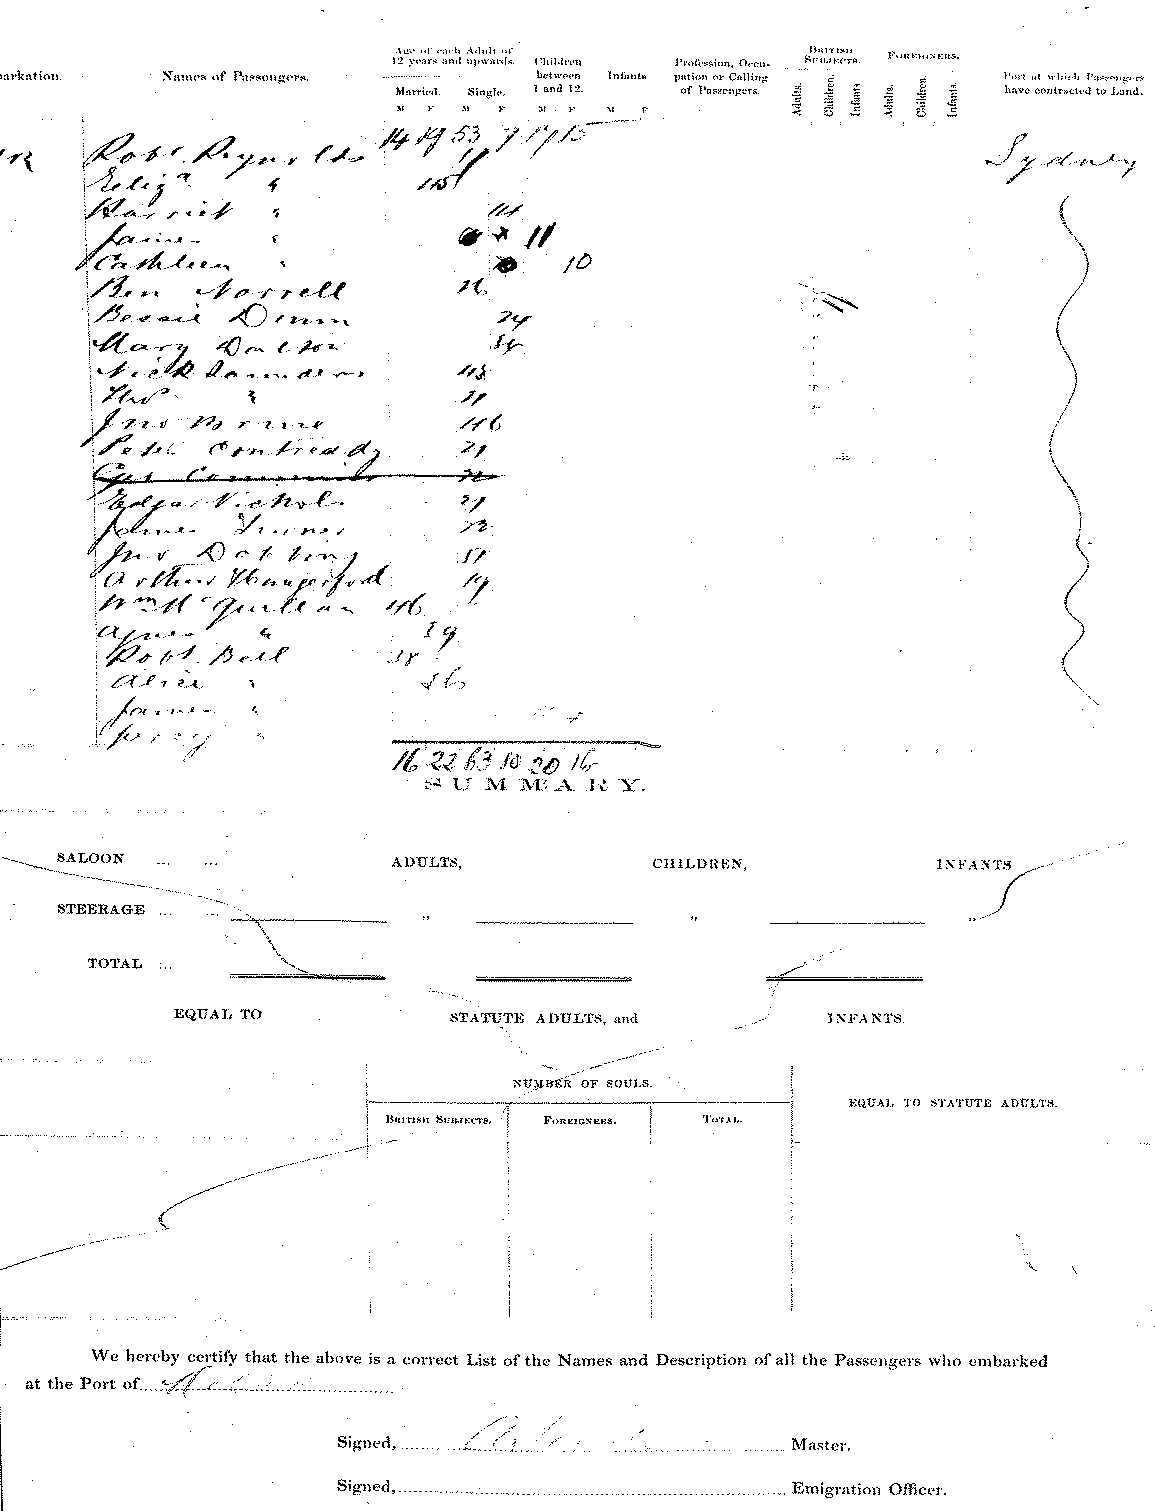 arkation. Names of Passengers. Age of each Adult of 12 years and upwards. Children between 1 and 12. Infants Profession, Occupation or Calling of Passengers. BRITISH SUBJECTS. FOREIGNERS. Port at which Passengers have contracted to Land.
Married. Single.
M F M F M F M F Adults. Children. Infants Adults. Children. Infants.
14 19 53 9 17 15
Robt Reynolds Sydney
Eliza " 45
Harriet "
James " 11
Cathleen " 10
Ben Norrell 26
Bessie Dunn 24
Mary Dalton 34
Nick Saunders
Tho "
Jno 46
Peter 21
Edgar Nichols 21
James 22
Jno Dobbing 51
Arthur Hungerford 19
Wm McQuillan 46
Agnes " 39
Robt Bell 38
Alice " 36
James "
Percy "
16 22 63 10 20 16
SUMMARY.
SALOON ... ... ADULTS, CHILDREN, INFANTS
STEERAGE ... ... " " "
TOTAL ...
EQUAL TO STATUTE ADULTS, and INFANTS.
NUMBER OF SOULS.
EQUAL TO STATUTE ADULTS.
BRITISH SUBJECTS. FOREIGNERS. TOTAL.
We hereby certify that the above is a correct List of the Names and Description of all the Passengers who embarked
at the Port of
Signed, Master.
Signed, Emigration Officer.